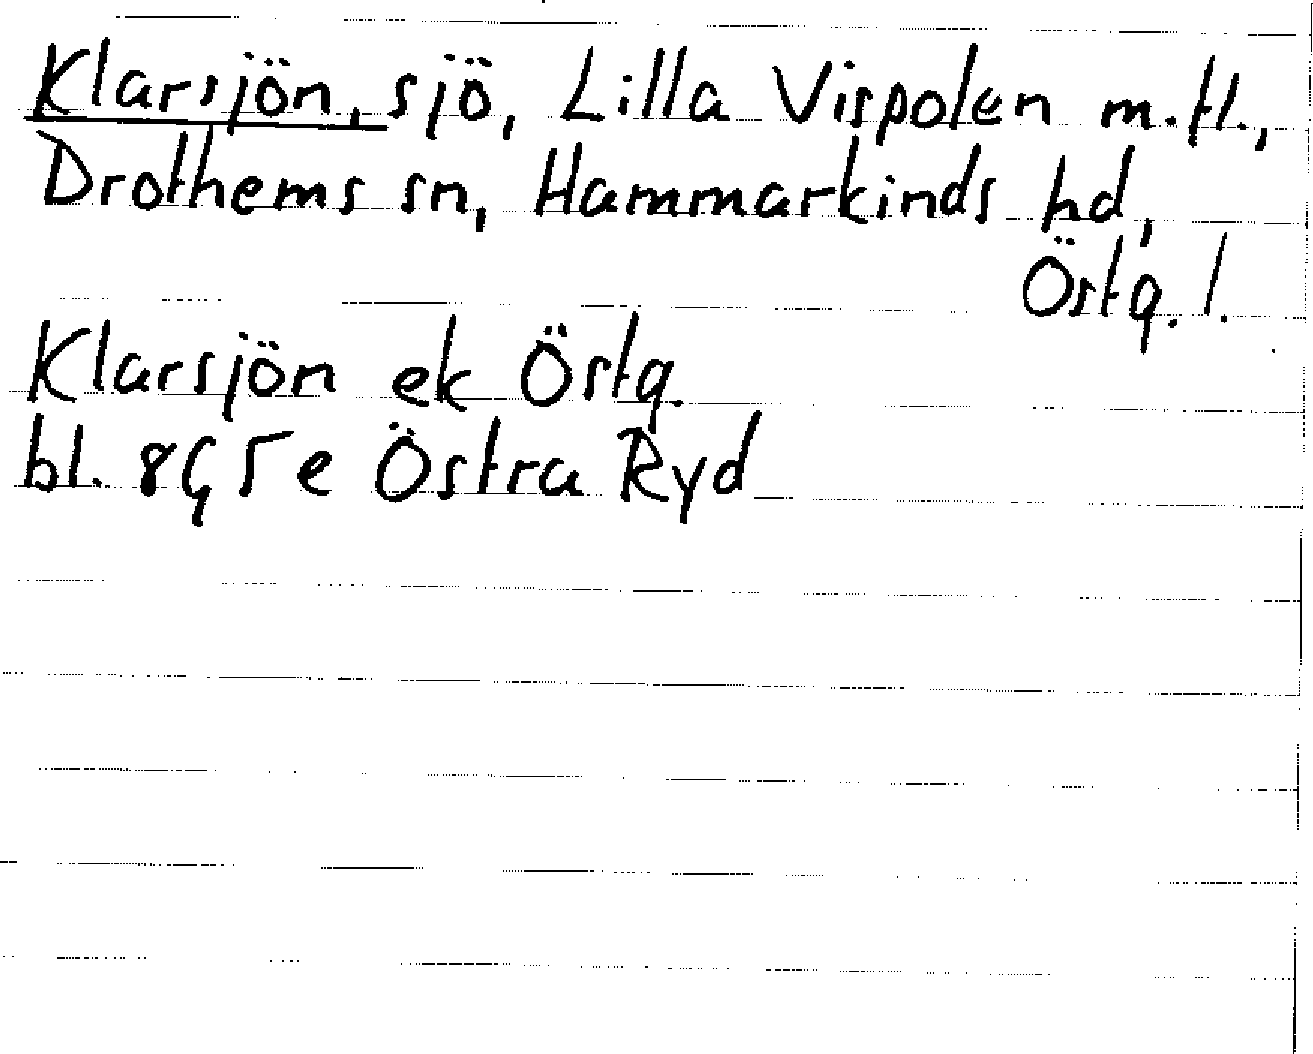 Klarsjön, sjö, Lilla Vispolen m.fl.,
Drothems sn, Hammarkinds hd,
Östg. l.
Klarsjön ek Östg.
bl. 8G5e Östra Ryd